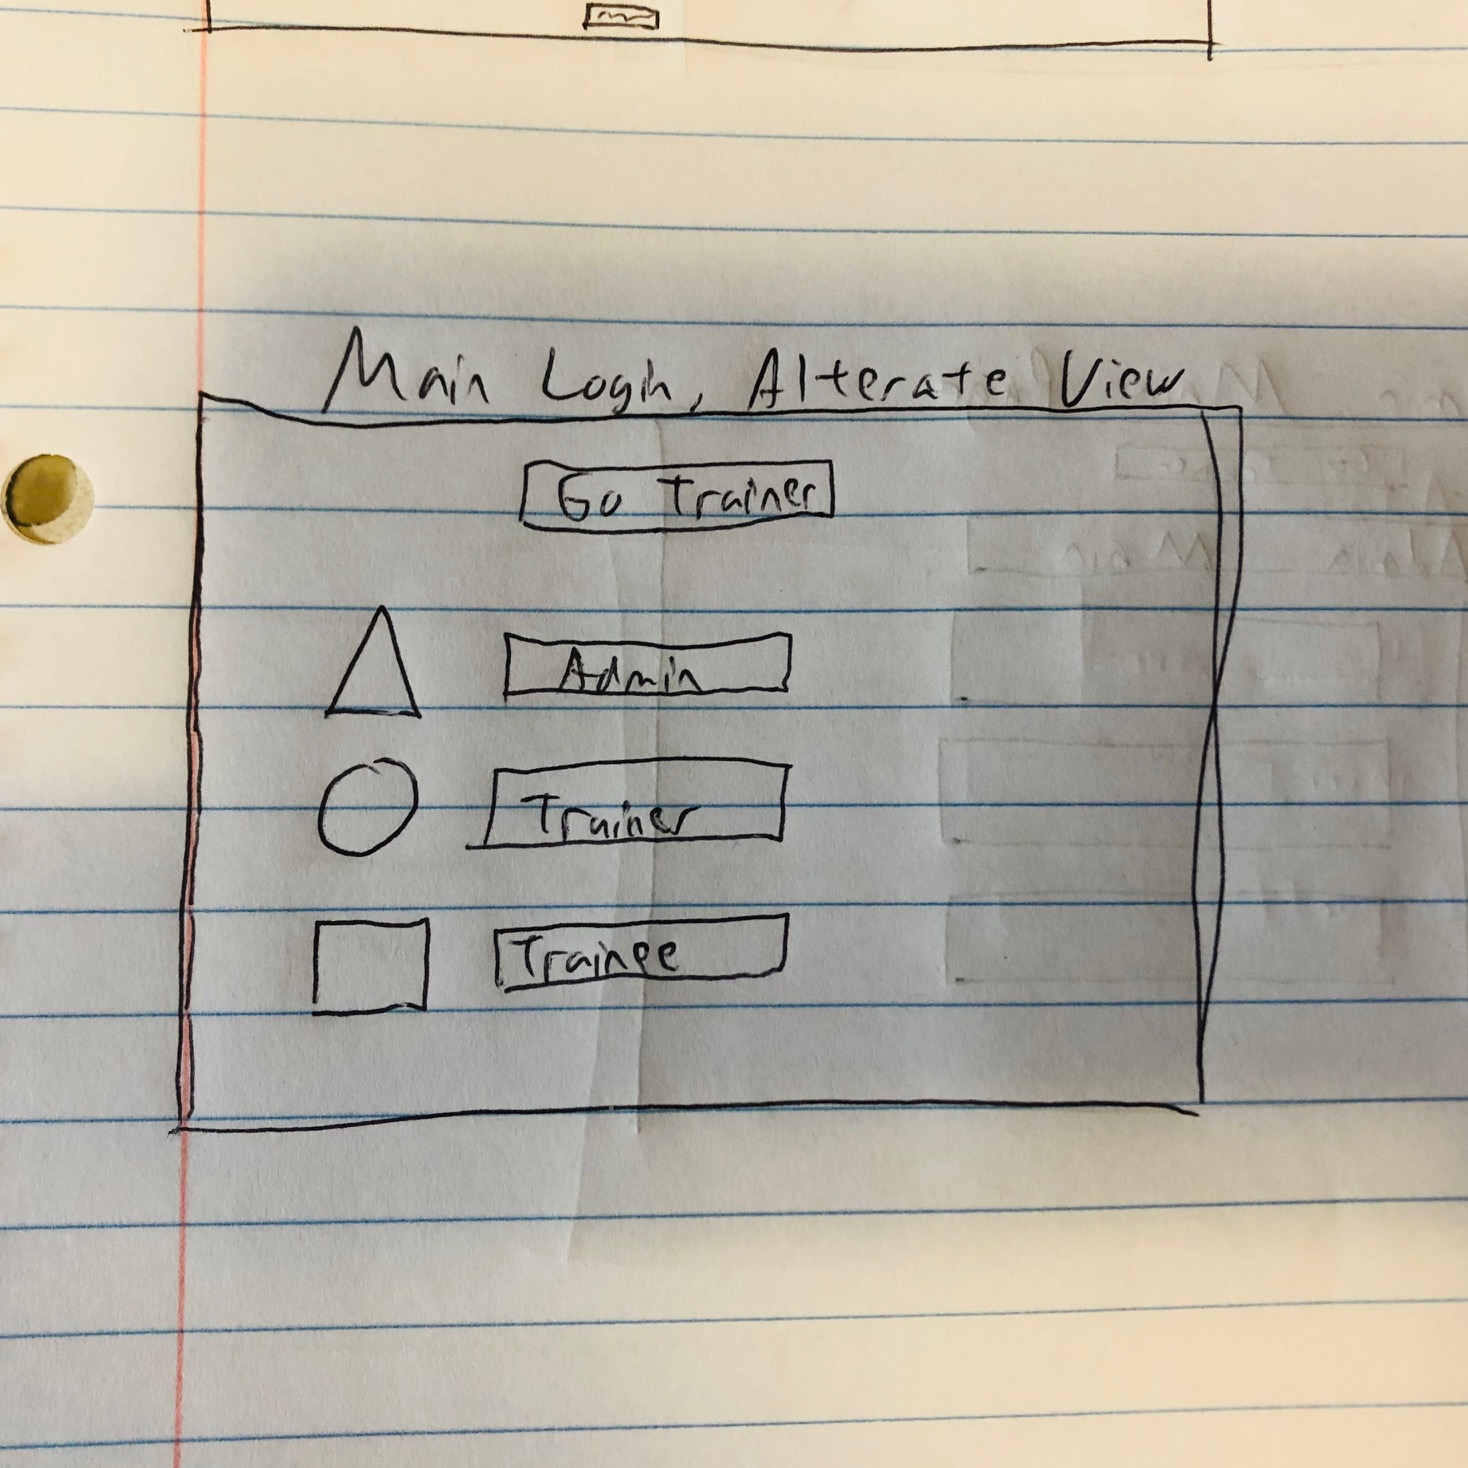 Main Login, Alterate View
Go Trainer
Admin
Trainer
Trainee